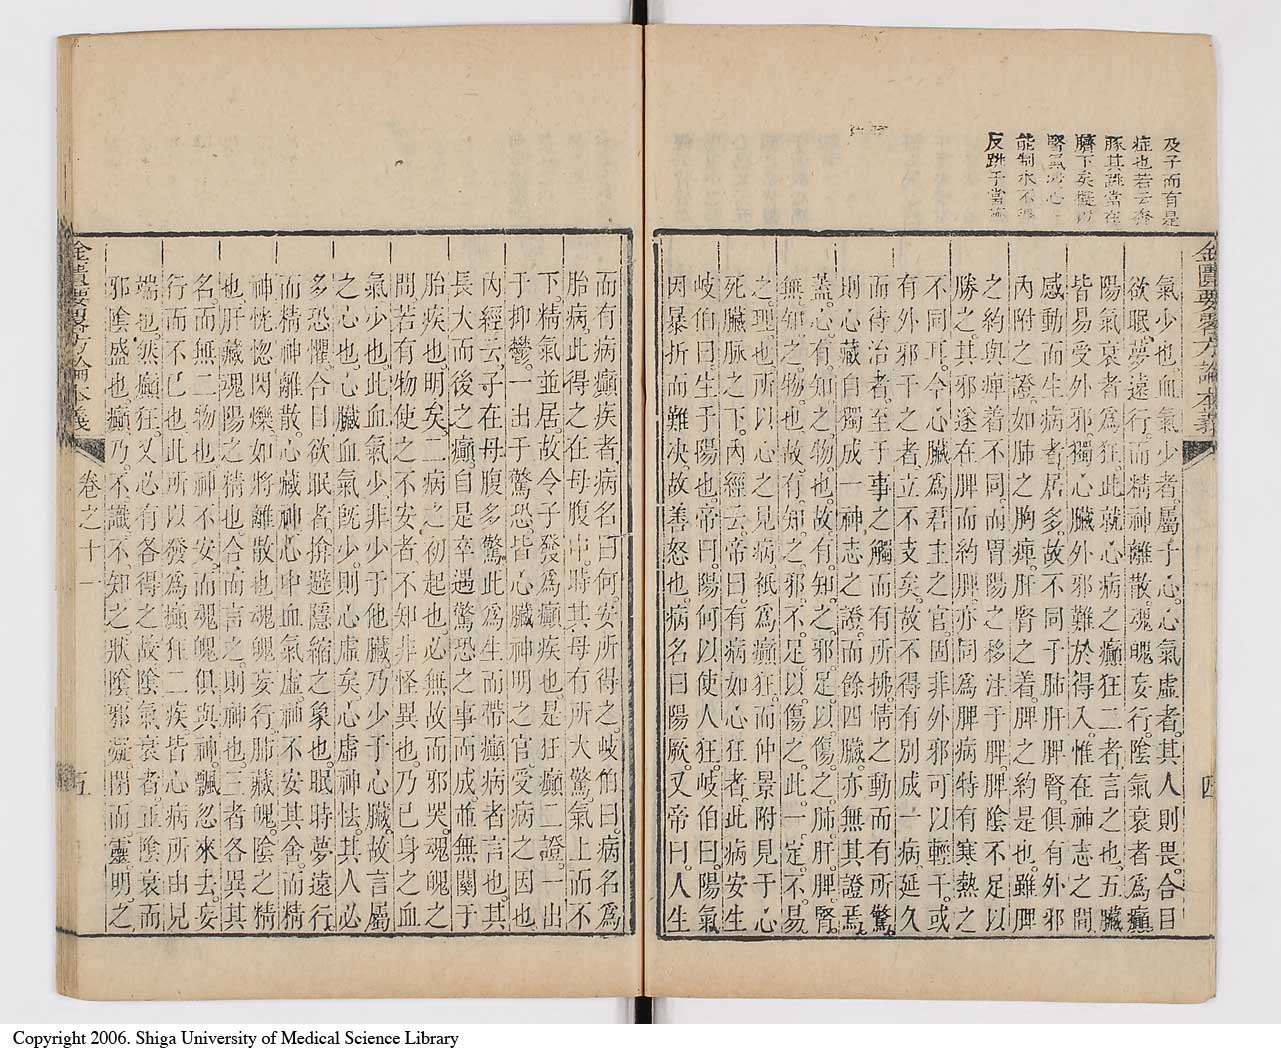 及子而有是
症也若云奔
豚其跳當在
臍下矣擬以
腎氣
能制水不
反跳乎當
金匱要畧方論本義
四
氣少也血氣少者屬于心心氣虛者其人則畏合目
欲眠夢遠行而精神離散魂魄妄行陰氣衰者爲癲
陽氣衰者爲狂此就心病之癲狂二者言之也五臟
皆易受外邪獨心臟外邪難於得入惟在神志之間
感動而生病者居多故不同于肺肝脾腎俱有外邪
內附之證如肺之胸痺肝腎之着脾之約是也雖脾
之約與痺着不同而胃陽之移注于脾脾陰不足以
勝之其邪遂在脾而約脾亦同爲脾病特有寒熱之
不同耳今心臟爲君主之官固非外邪可以輕干或
有外邪干之者立不支矣故不得有別成一病延久
而待治者至于事之觸而有所拂情之動而有所驚
則心藏自獨成一神志之證而餘四臟亦無其證焉
蓋心有知之物也故有知之邪足以傷之肺肝脾腎
無知之物也故有知之邪不足以傷之此一定不易
之理也所以心之見病祇爲癲狂而仲景附見于心
死臟脉之下內經云帝曰有病如心狂者此病安生
岐伯曰生于陽也帝曰陽何以使人狂岐伯曰陽氣
因暴折而難决故善怒也病名曰陽厥又帝曰人生
而有病癲疾者病名曰何安所得之岐伯曰病名爲
胎病此得之在母腹中時其母有所大驚氣上而不
下精氣並居故令子發爲癲疾也是狂癲二證一出
于抑鬱一出于驚恐皆心臟神明之官受病之因也
內經云子在母腹多驚此爲生而帶癲病者言也其
長大而後之癲自是卒遇驚恐之事而成並無關于
胎疾也明矣二病之初起也必無故而邪哭魂魄之
間若有物使之不安者不知非怪異也乃己身之血
氣少也此血氣少非少于他臟乃少于心臟故言屬
之心也心臟血氣既少則心虛矣心虛神怯其人必
多恐懼合目欲眠者揜避隱縮之象也眠時夢遠行
而精神離散心藏神心中血氣虛神不安其舍而精
神恍惚閃爍如將離散也魂魄妄行肺藏魄陰之精
也肝藏魂陽之精也合而言之則神也三者各異其
名而無二物也神不安而魂魄俱與神飄忽來去妄
行而不已也此所以發爲癲狂二疾皆心病所由見
端也然癲狂又必有各得之故陰氣衰者正陰衰而
邪陰盛也癲乃不識不知之狀陰邪凝閉而靈明之
金匱要畧方論本義
卷之十一
五
Copyright 2006. Shiga University of Medical Science Library